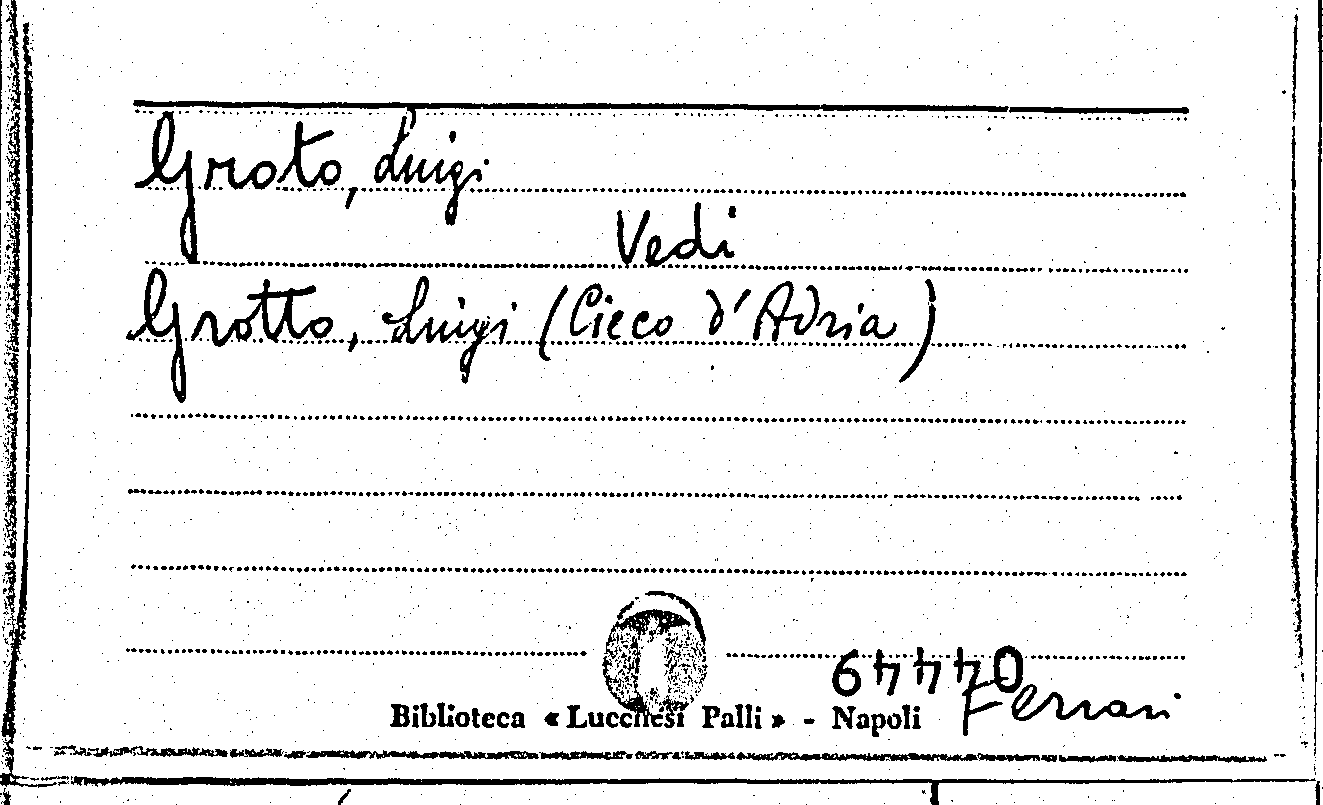 Groto, Luigi
Vedi
Grotto, Luigi (Cieco d'Adria)
04449
Ferrari
Biblioteca « Lucchesi Palli » - Napoli